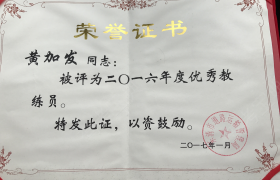 荣誉证书
黄加发 同志：
被评为二〇一六年度优秀教
练员。
特发此证，以资鼓励。
二〇一七年一月